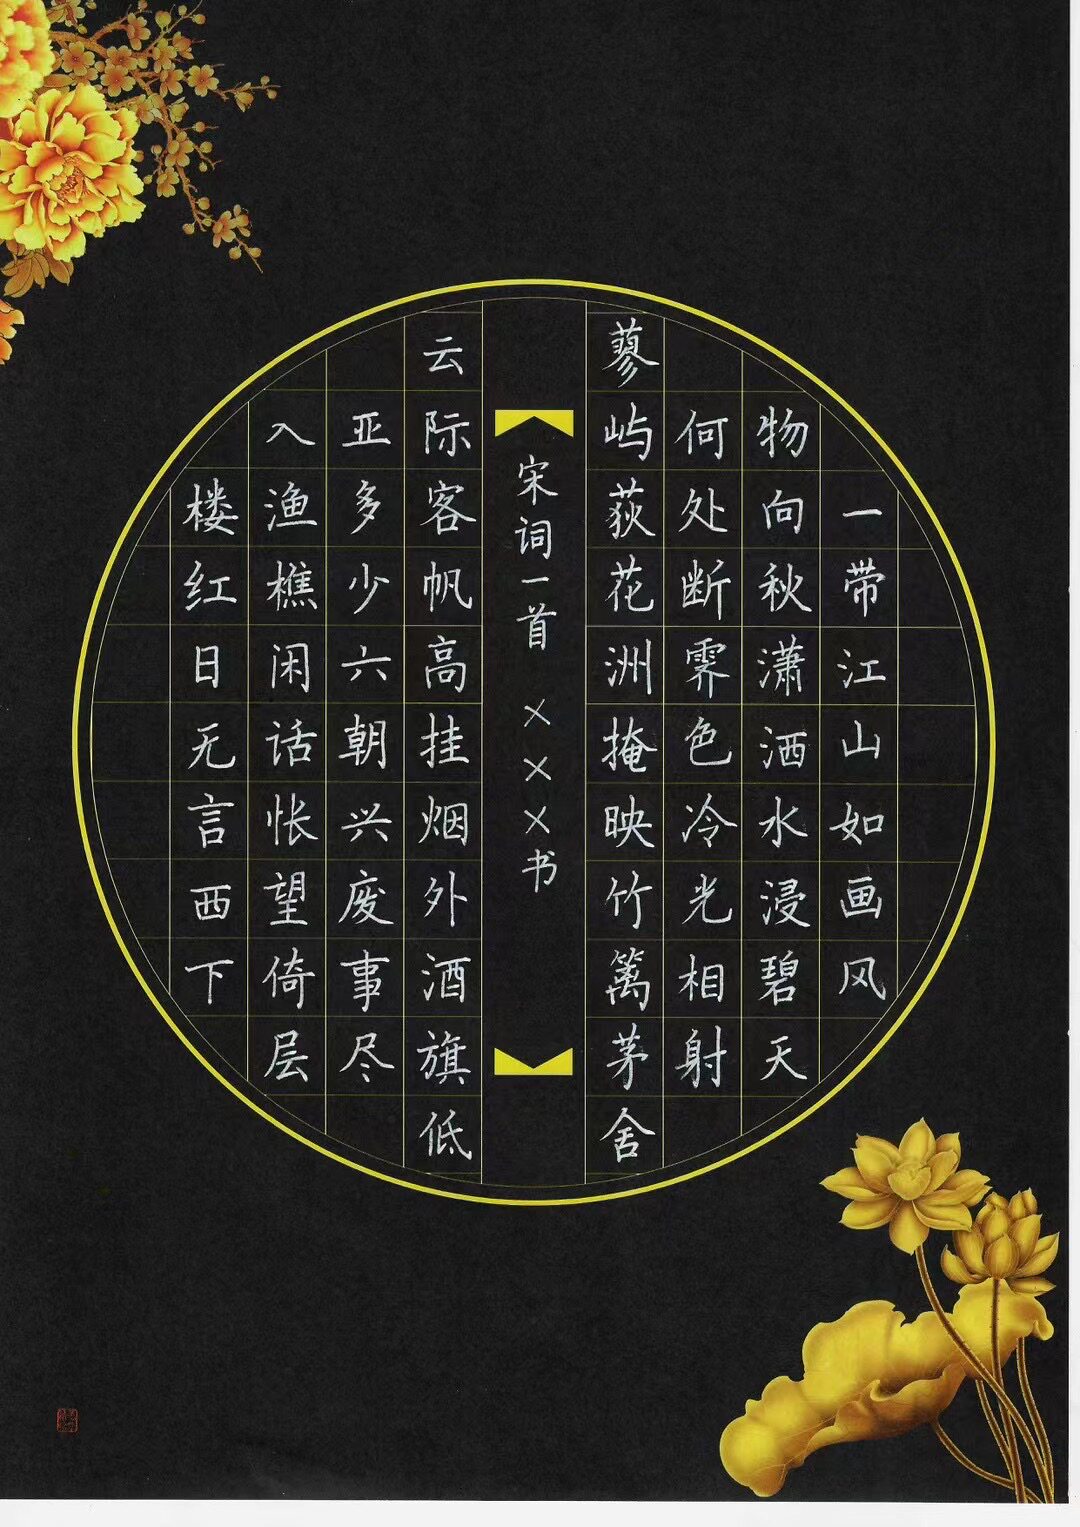 一带江山如画风
物向秋潇洒水浸碧天
何处断霁色冷光相射
蓼屿荻花洲掩映竹篱茅舍
云际客帆高挂烟外酒旗低
亚多少六朝兴废事尽
入渔樵闲话怅望倚层
楼红日无言西下
宋词一首 ×××书